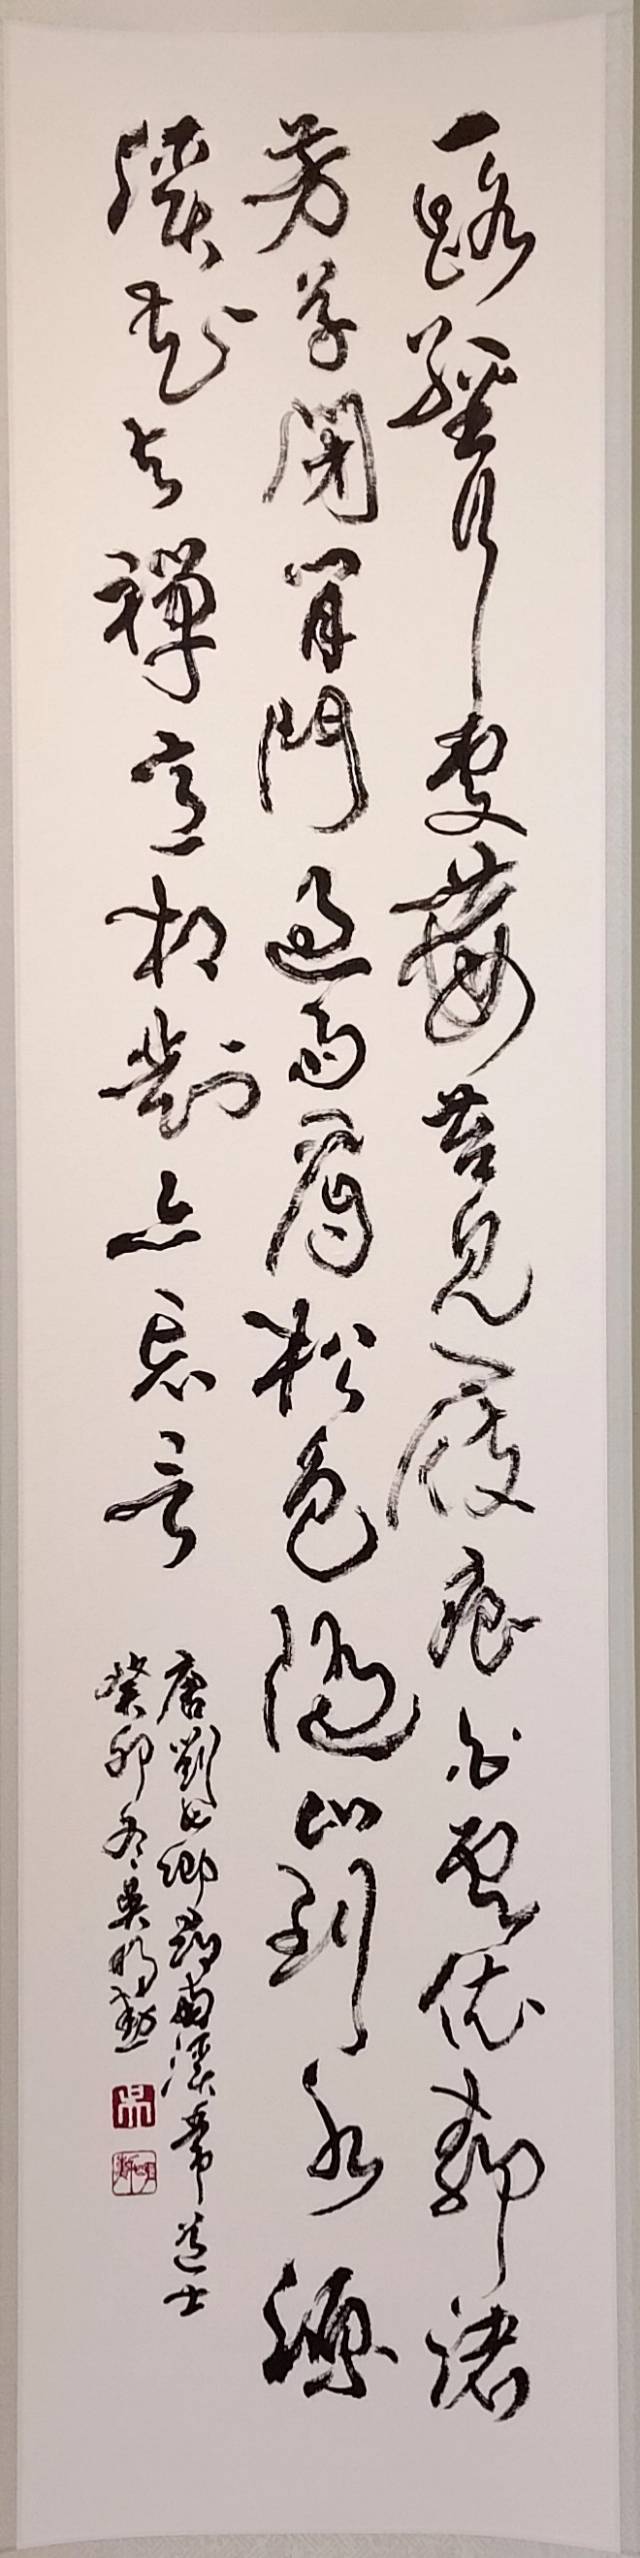 一路經行處莓苔見履痕白雲依靜渚
芳草閉閒門過雨看松色隨山到水源
溪花與禪意相對亦忘言
唐劉長卿尋南溪常道士
癸卯冬吳